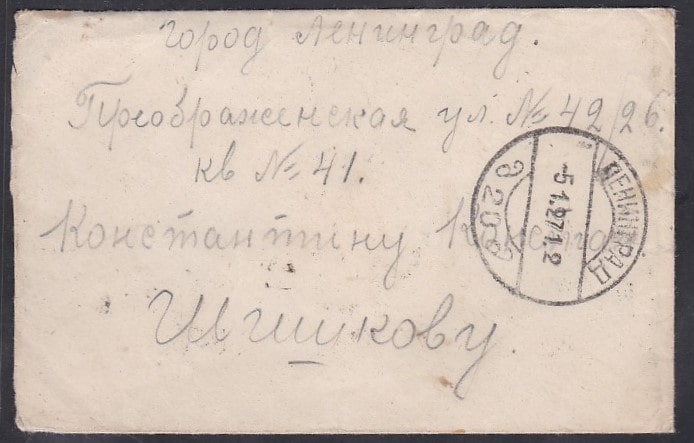 Город Ленинград.
Преображенская ул. № 42/26.
кв № 41.
Константину Констан
Шишкову
ЛЕНИНГРАД
-5.1.27.12